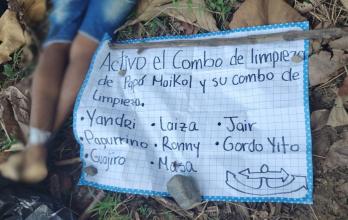 Activo el Combo de limpieza
de Papá Maikol y su combo de
limpieza.
• Yandri • Laiza • Jair
• Pagurrino • Ronny • Gordo Yito
• Guajiro • Masa